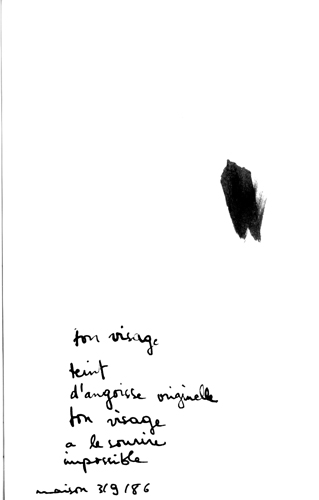 ton visage
teint
d'angoisse originelle
ton visage
a le sourire
impossible
maison 3/9/86